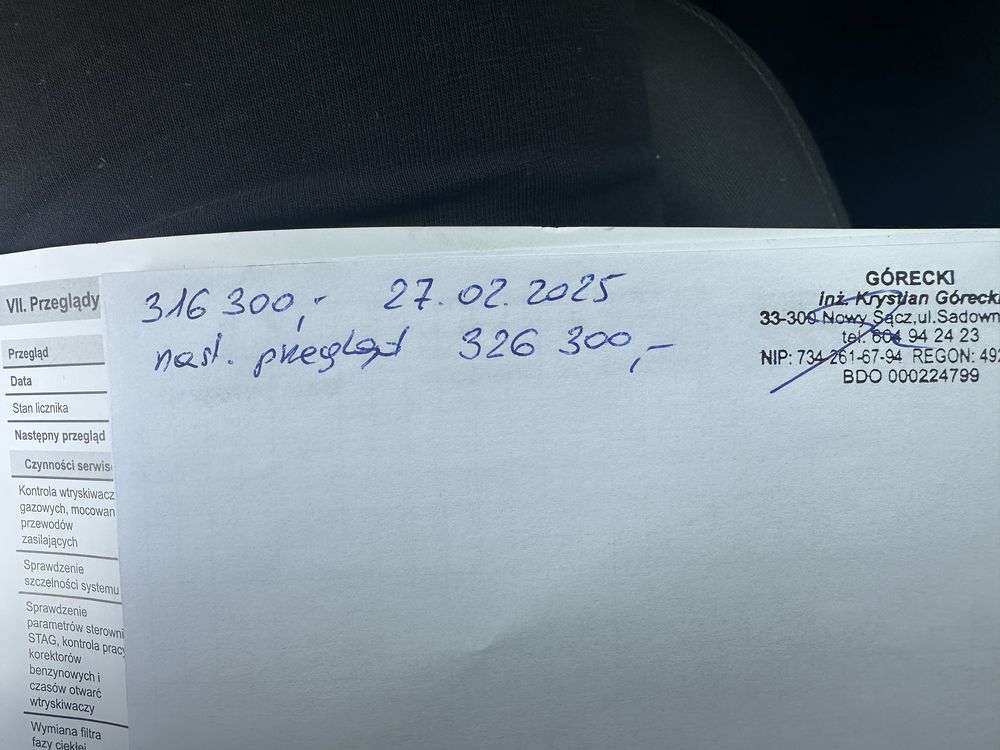 VII. Przeglądy
Przegląd
Data
Stan licznika
Następny przegląd
Czynności serwis
Kontrola wtryskiwacz
gazowych, mocowan
przewodów
zasilających
Sprawdzenie
szczelności systemu
Sprawdzenie
parametrów sterowni
STAG, kontrola pracy
korektorów
benzynowych i
czasów otwarć
wtryskiwaczy
Wymiana filtra
fazy ciekłej
316 300,- 27.02.2025
nast. przegląd 326 300,-
GÓRECKI
inż. Krystian Górecki
33-300 Nowy Sącz, ul.Sadown
tel. 604 94 24 23
NIP: 734-261-67-94 REGON: 492
BDO 000224799